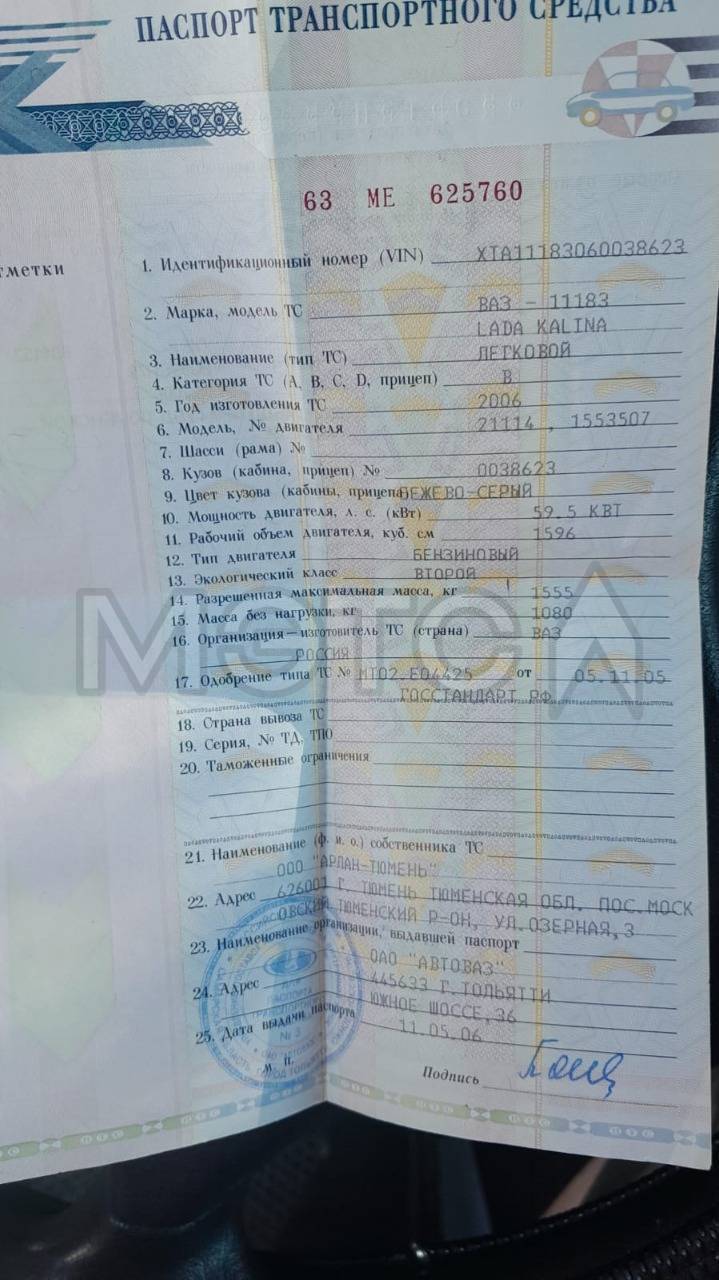 ПАСПОРТ ТРАНСПОРТНОГО СРЕДСТВА
63 МЕ 625760
тметки
1. Идентификационный номер (VIN) XTA11183060038623
2. Марка, модель ТС ВАЗ - 11183
LADA KALINA
3. Наименование (тип ТС) ЛЕГКОВОЙ
4. Категория ТС (A, B, C, D, прицеп) B
5. Год изготовления ТС 2006
6. Модель, № двигателя 21114 , 1553507
7. Шасси (рама) №
8. Кузов (кабина, прицеп) № 0038623
9. Цвет кузова (кабины, прицепа) БЕЖЕВО-СЕРЫЙ
10. Мощность двигателя, л. с. (кВт) 59.5 КВТ
11. Рабочий объем двигателя, куб. см 1596
12. Тип двигателя БЕНЗИНОВЫЙ
13. Экологический класс ВТОРОЙ
14. Разрешенная максимальная масса, кг 1555
15. Масса без нагрузки, кг 1080
16. Организация—изготовитель ТС (страна) ВАЗ
РОССИЯ
17. Одобрение типа ТС № МТ02.Е04425 от 05.11.05
ГОССТАНДАРТ РФ
18. Страна вывоза ТС
19. Серия, № ТД, ТПО
20. Таможенные ограничения
21. Наименование (ф. и. о.) собственника ТС
ООО "АРЛАН-ТЮМЕНЬ"
22. Адрес 626001 Г. ТЮМЕНЬ ТЮМЕНСКАЯ ОБЛ. ПОС.МОСК
ОВСКИЙ ТЮМЕНСКИЙ Р-ОН, УЛ.ОЗЕРНАЯ,3
23. Наименование организации, выдавшей паспорт
ОАО "АВТОВАЗ"
24. Адрес 445633 Г.ТОЛЬЯТТИ
ЮЖНОЕ ШОССЕ,36
25. Дата выдачи паспорта 11.05.06
М. П.
Подпись